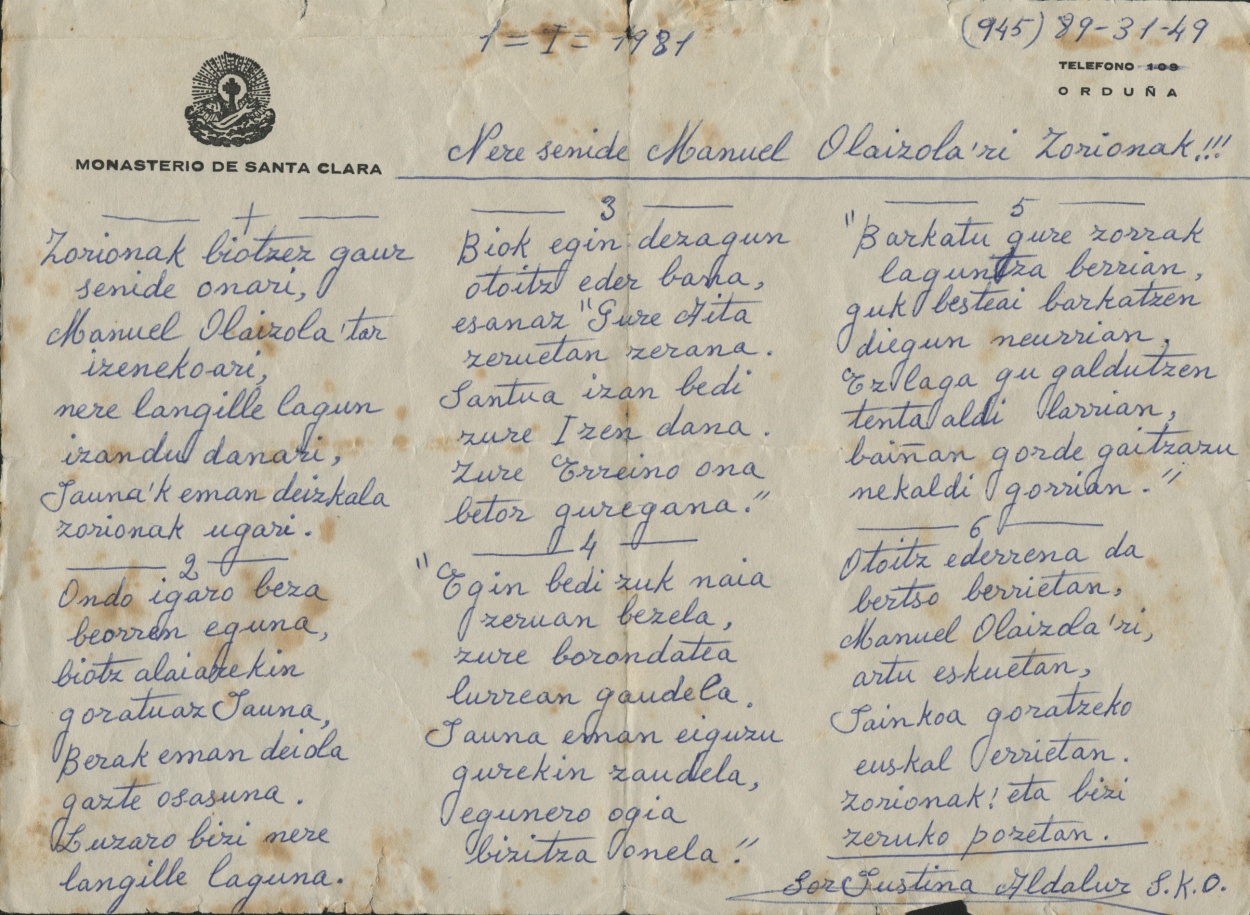 1 = I = 1981
(945) 89-31-49
TELEFONO 109
ORDUÑA
MONASTERIO DE SANTA CLARA
Nere senide Manuel Olaizola'ri Zorionak!!!
1
Zorionak biotzez gaur
senide onari,
Manuel Olaizola'tar
izeneko-ari,
nere langille lagun
izandu danari,
Jauna'k eman deizkala
zorionak ugari.
2
Ondo igaro beza
beorren eguna,
biotz alaiarekin
goratuaz Jauna,
Berak eman deiola
gazte osasuna.
Luzaro bizi nere
langille laguna.
3
Biok egin dezagun
otoitz eder bana,
esanaz "Gure Aita
zeruetan zerana.
Santua izan bedi
zure Izen dana.
Zure Erreino ona
betor guregana."
4
"Egin bedi zuk naia
zeruan bezela,
zure borondatea
lurrean gaudela.
Jauna eman eiguzu
gurekin zaudela,
egunero ogia
bizitza onela."
5
"Barkatu gure zorrak
laguntza berrian,
guk besteai barkatzen
diegun neurrian.
Ez laga gu galdutzen
tentaldi larrian,
baiñan gorde gaitzazu
nekaldi gorrian."
6
Otoitz ederrena da
bertso berrietan,
Manuel Olaizola'ri,
artu eskuetan,
Jainkoa goratzeko
euskal errietan.
Zorionak! eta bizi
zeruko pozetan.
Sor Justina Aldalur S.K.O.